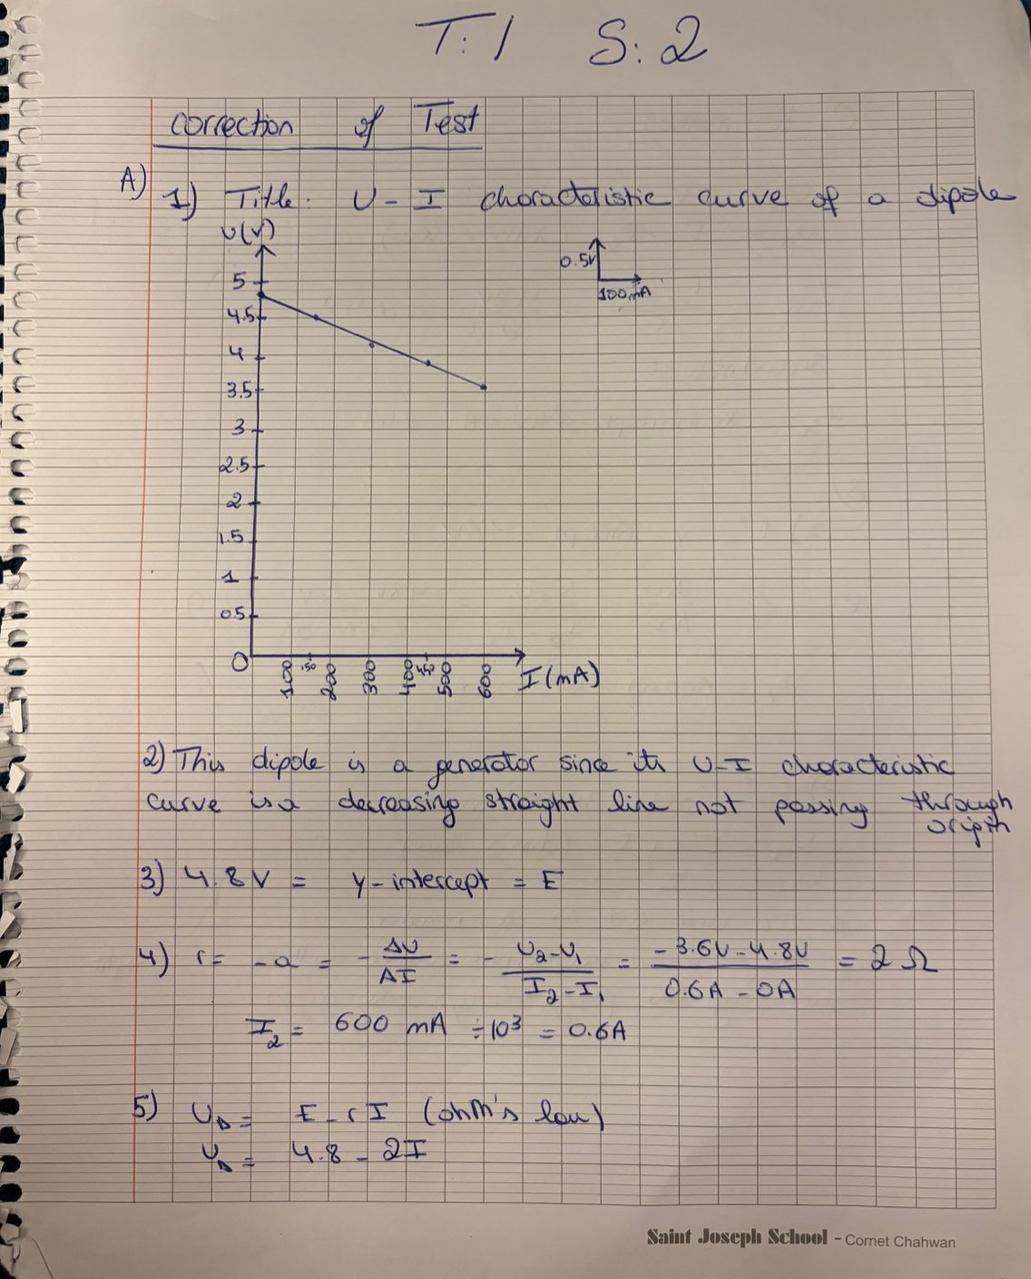 T:1 S:2
Correction of Test
A) 1) Title. U-I characteristic curve of a dipole
U(V)
0.5V
100mA
5
4.5
4
3.5
3
2.5
2
1.5
1
0.5
0
100 150 200 300 400 450 500 600 I(mA)
2) This dipole is a generator since its U-I characteristic
curve is a decreasing straight line not passing through
origin
3) 4.8V = y-intercept = E
4) r = -a = -ΔU/ΔI = -U₂-U₁/I₂-I₁ = -3.6V-4.8V/0.6A-0A = 2Ω
I₂ = 600 mA ÷10³ = 0.6A
5) U_D = E-rI (ohm's law)
U_D = 4.8-2I
Saint Joseph School - Cornet Chahwan